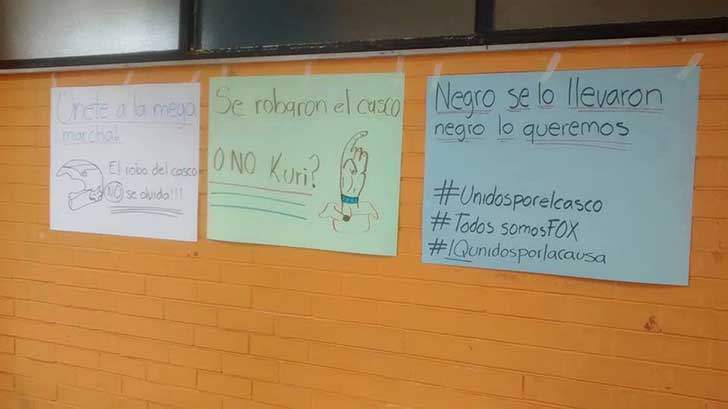 Únete a la mega
marcha!
El robo del casco
NO se olvida!!!
Se robaron el casco
O NO Kuri?
Negro se lo llevaron
negro lo queremos
#Unidosporelcasco
#TodossomosFOX
#IQunidosporlacausa